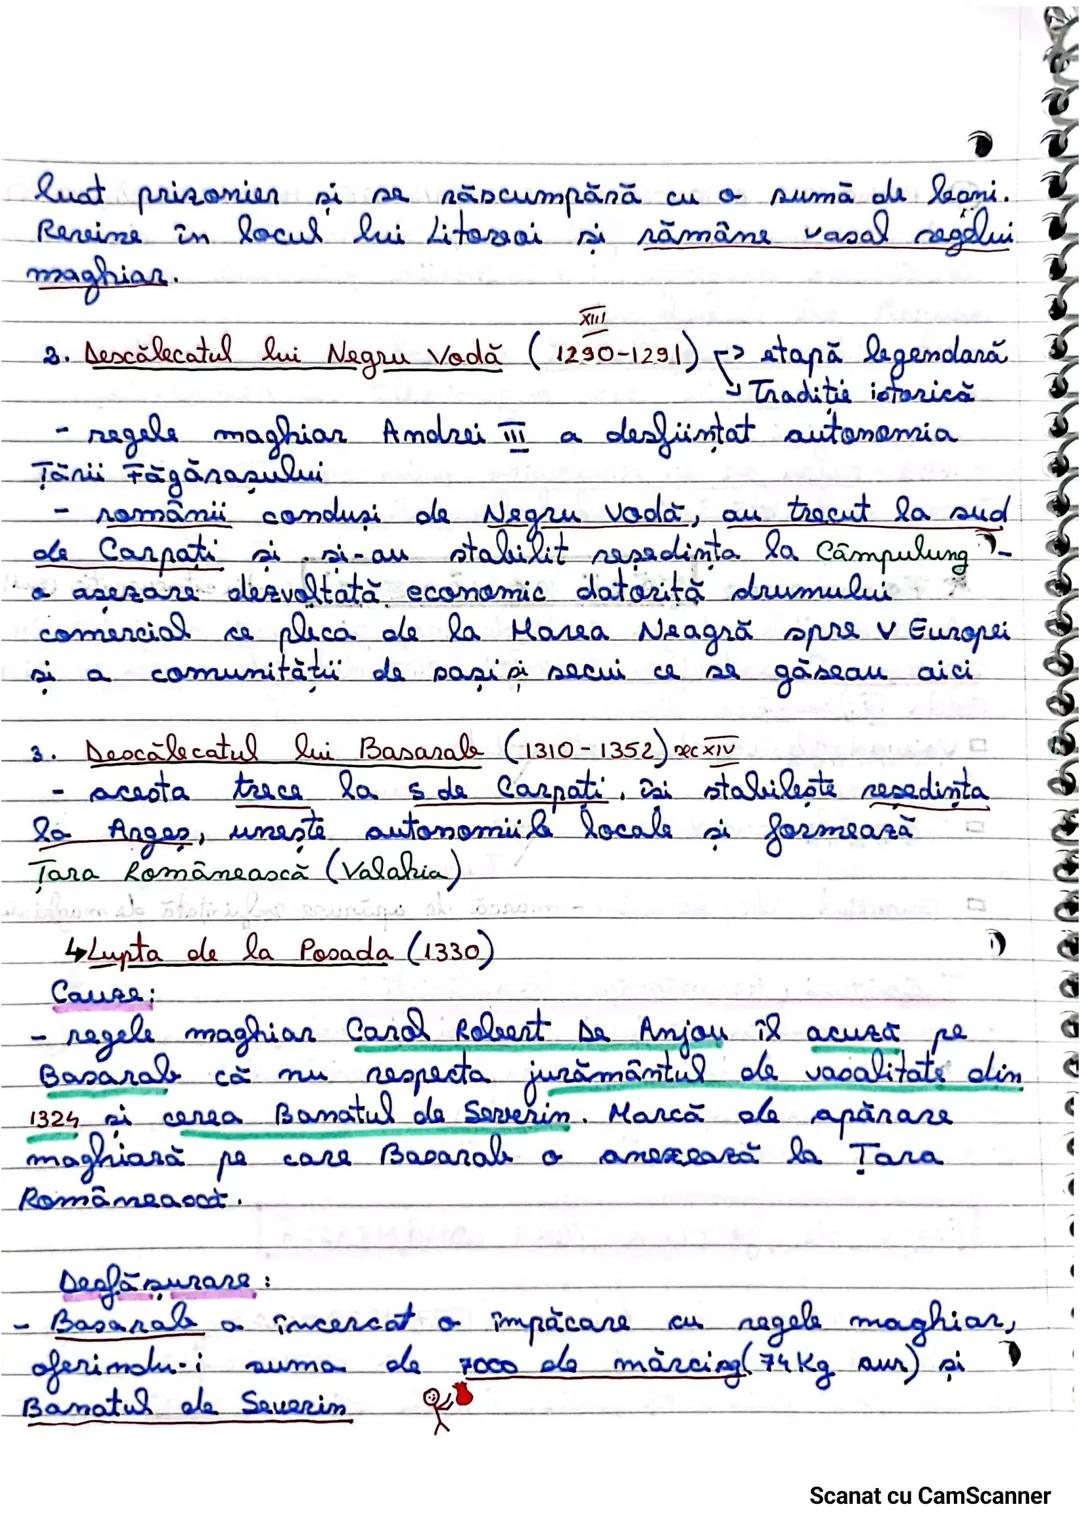 luat prizonier și se răscumpără cu o sumă de bani.
Revine în locul lui Litovoi și rămâne vasal regelui
maghiar.
XIII
2. Descălecatul lui Negru Vodă (1290-1291) → etapă legendară
↳ Tradiție istorică
- regele maghiar Andrei III a desființat autonomia
Țării Făgărașului
- românii conduși de Negru Vodă, au trecut la sud
de Carpați și și-au stabilit reședința la Câmpulung -
o așezare dezvoltată economic datorită drumului
comercial ce pleca de la Marea Neagră spre V Europei
și a comunității de sași și secui ce se găseau aici
3. Descălecatul lui Basarab (1310-1352) sec XIV
- acesta trece la S de Carpați, își stabilește reședința
la Argeș, unește autonomiile locale și formează
Țara Românească (Valahia)
↳ Lupta de la Posada (1330)
Cauze:
- regele maghiar Carol Robert De Anjou îl acuză pe
Basarab că nu respecta jurământul de vasalitate din
1324 și cerea Banatul de Severin. Marcă de apărare
maghiară pe care Basarab o anexează la Țara
Românească.
Desfășurare:
- Basarab a încercat o împăcare cu regele maghiar,
oferindu-i suma de 7000 de mărci ag (74 Kg aur) și
Banatul de Severin
Scanat cu CamScanner